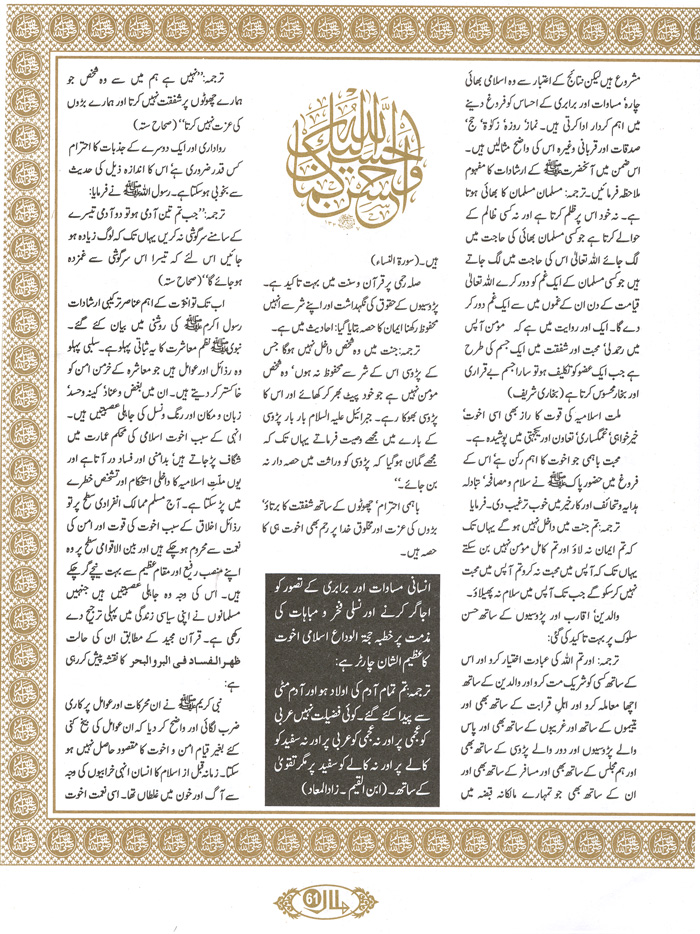 مشروع ہیں لیکن نتائج کے اعتبار سے وہ اسلامی بھائی
چارہ‘ مساوات اور برابری کے احساس کو فروغ دینے
میں اہم کردار ادا کرتی ہیں۔ نماز‘ روزہ‘ زکوٰۃ‘ حج‘
صدقات اور قربانی وغیرہ اس کی واضح مثالیں ہیں۔
اس ضمن میں آنحضرت ﷺ کے ارشادات کا مفہوم
ملاحظہ فرمائیں۔ ترجمہ: مسلمان مسلمان کا بھائی ہوتا
ہے۔ نہ خود اس پر ظلم کرتا ہے اور نہ کسی ظالم کے
حوالے کرتا ہے جو کسی مسلمان بھائی کی حاجت میں
لگ جائے اللہ تعالیٰ اس کی حاجت میں لگ جاتے
ہیں جو کسی مسلمان کے ایک غم کو دور کرے اللہ تعالیٰ
قیامت کے دن ان کے غموں میں سے ایک غم دور کر
دے گا۔ ایک اور روایت میں ہے کہ مومن آپس
میں رحمدلی‘ محبت اور شفقت میں ایک جسم کی طرح
ہے جب ایک عضو کو تکلیف ہو تو سارا جسم بے قراری
اور بخار محسوس کرتا ہے (بخاری شریف)
ملت اسلامیہ کی قوت کا راز بھی اسی اخوت‘
خیر خواہی‘ غمگساری‘ تعاون اور یکجہتی میں پوشیدہ ہے۔
محبت باہمی جو اخوت کا اہم رکن ہے‘ اس کے
فروغ میں حضور پاک ﷺ نے سلام و مصافحہ‘ تبادلہ
ہدایہ و تحائف اور کارخیر میں خوب ترغیب دی۔ فرمایا
ترجمہ: تم جنت میں داخل نہیں ہو گے یہاں تک
کہ تم ایمان نہ لاؤ اور تم کامل مؤمن نہیں بن سکتے
یہاں تک کہ آپس میں محبت نہ کرو تم آپس میں محبت
نہیں کر سکو گے جب تک آپس میں سلام نہ پھیلاؤ۔
والدین‘ اقارب اور پڑوسیوں کے ساتھ حسن
سلوک پر بہت تاکید کی گئی:
ترجمہ: اور تم اللہ کی عبادت اختیار کرو اور اس
کے ساتھ کسی کو شریک مت کرو اور والدین کے ساتھ
اچھا معاملہ کرو اور اہلِ قرابت کے ساتھ بھی اور
یتیموں کے ساتھ اور غریبوں کے ساتھ بھی اور پاس
والے پڑوسیوں اور دور والے پڑوسی کے ساتھ بھی
اور ہم مجلس کے ساتھ بھی اور مسافر کے ساتھ بھی اور
ان کے ساتھ بھی جو تمہارے مالکانہ قبضہ میں
واحسن كما احسن الله اليك
ہیں۔ (سورۃ النساء)
صلہ رحمی پر قرآن و سنت میں بہت تاکید ہے۔
پڑوسیوں کے حقوق کی نگہداشت اور اپنے شر سے انہیں
محفوظ رکھنا ایمان کا حصہ بتایا گیا: احادیث میں ہے۔
ترجمہ: جنت میں وہ شخص داخل نہیں ہوگا جس
کے پڑوسی اس کے شر سے محفوظ نہ ہوں‘ وہ شخص
مؤمن نہیں ہے جو خود پیٹ بھر کر کھائے اور اس کا
پڑوسی بھوکا رہے۔ جبرائیل علیہ السلام بار بار پڑوسی
کے بارے میں مجھے وصیت فرماتے یہاں تک کہ
مجھے گمان ہو گیا کہ پڑوسی کو وراثت میں حصہ دار نہ
بن جائے۔‘‘
باہمی احترام‘ چھوٹوں کے ساتھ شفقت کا برتاؤ‘
بڑوں کی عزت اور مخلوق خدا پر رحم بھی اخوت ہی کا
حصہ ہیں۔
انسانی مساوات اور برابری کے تصور کو
اجاگر کرنے اور نسلی فخر و مباہات کی
مذمت پر خطبہ حجۃ الوداع اسلامی اخوت
کا عظیم الشان چارٹر ہے:
ترجمہ: تم تمام آدم کی اولاد ہو اور آدم مٹی
سے پیدا کئے گئے۔ کوئی فضیلت نہیں عربی
کو عجمی پر اور نہ عجمی کو عربی پر اور نہ سفید کو
کالے پر اور نہ کالے کو سفید پر مگر تقویٰ
کے ساتھ۔ (ابن القیم۔ زاد المعاد)
ترجمہ: ’’نہیں ہے ہم میں سے وہ شخص جو
ہمارے چھوٹوں پر شفقت نہیں کرتا اور ہمارے بڑوں
کی عزت نہیں کرتا‘‘ (صحاح ستہ)
رواداری اور ایک دوسرے کے جذبات کا احترام
کس قدر ضروری ہے‘ اس کا اندازہ ذیل کی حدیث
سے بخوبی ہو سکتا ہے۔ رسول اللہ ﷺ نے فرمایا:
ترجمہ: ’’جب تم تین آدمی ہو تو دو آدمی تیسرے
کے سامنے سرگوشی نہ کریں یہاں تک کہ لوگ زیادہ ہو
جائیں اس لئے کہ تیسرا اس سرگوشی سے غمزدہ
ہو جائے گا‘‘ (صحاح ستہ)
اب تک تو اخوت کے اہم عناصر ترکیبی ارشادات
رسول اکرم ﷺ کی روشنی میں بیان کئے گئے۔
نبوی ﷺ نظم معاشرت کا یہ ثباتی پہلو ہے۔ سلبی پہلو
وہ رذائل اور عوامل ہیں جو معاشرہ کے خرمن امن کو
خاکستر کر دیتے ہیں۔ ان میں بغض و عناد‘ کینہ و حسد‘
زبان و مکان اور رنگ و نسل کی جاہلی عصبیتیں ہیں۔
انہی کے سبب اخوت اسلامی کی محکم عمارت میں
شگاف پڑ جاتے ہیں‘ بدامنی اور فساد در آتا ہے اور
یوں ملتِ اسلامیہ کا داخلی استحکام اور تشخص خطرے
میں پڑ سکتا ہے۔ آج مسلم ممالک انفرادی سطح پر تو
رذائل اخلاق کے سبب اخوت کی قوت اور امن کی
نعمت سے محروم ہو چکے ہیں اور بین الاقوامی سطح پر وہ
اپنے منصب رفیع اور مقام عظیم سے بہت نیچے گر چکے
ہیں۔ اس کی وجہ وہ جاہلی عصبیتیں ہیں جنہیں
مسلمانوں نے اپنی سیاسی زندگی میں پہلی ترجیح دے
رکھی ہے۔ قرآن مجید کے مطابق ان کی حالت
ظهر الفساد فی البر والبحر کا نقشہ پیش کر رہی
ہے:
نبی کریم ﷺ نے ان محرکات اور عوامل پر کاری
ضرب لگائی اور واضح کر دیا کہ ان عوامل کی بیخ کنی
کئے بغیر قیام امن و اخوت کا مقصود حاصل نہیں ہو
سکتا۔ زمانہ قبل از اسلام کا انسان انہی خرابیوں کی وجہ
سے آگ اور خون میں غلطاں تھا۔ اسی نعمت اخوت
ہلال
61